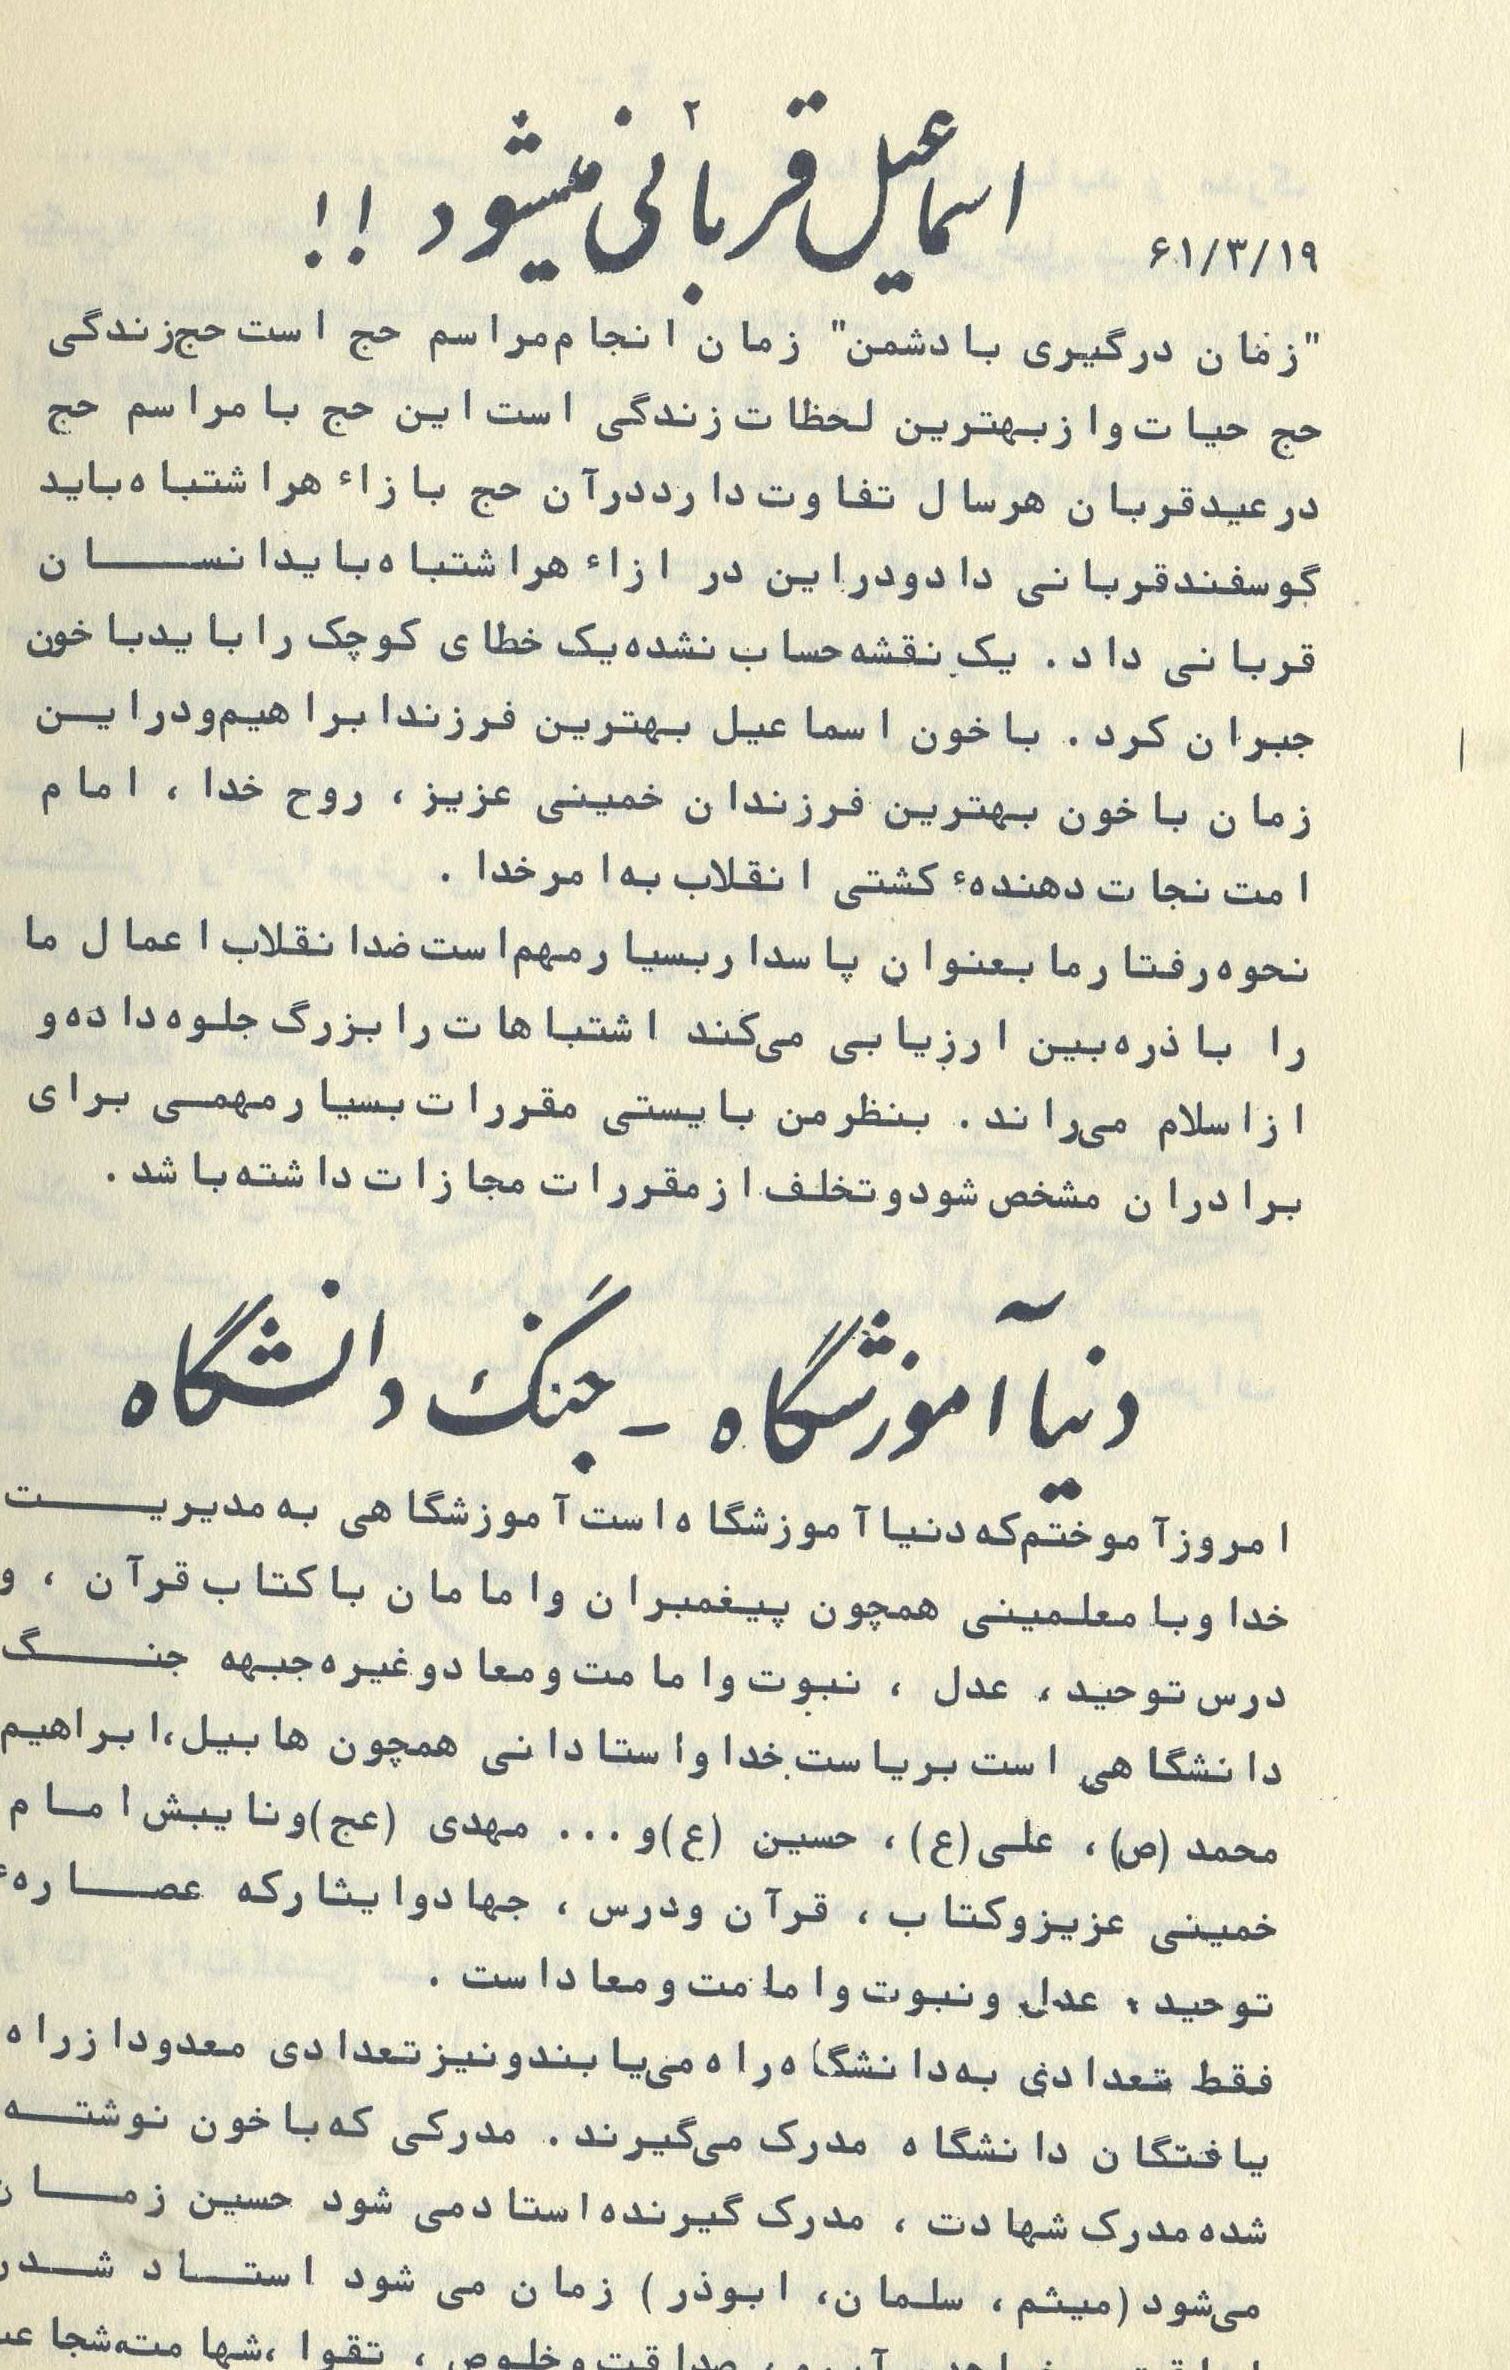 ۲
اسماعیل قربانی میشود !!
۶۱/۳/۱۹
"زمان درگیری بادشمن" زمان انجام مراسم حج است حج زندگی
حج حیات و از بهترین لحظات زندگی است این حج با مراسم حج
در عید قربان هرسال تفاوت دارد در آن حج بازاء هر اشتباه باید
گوسفند قربانی داد و در این در ازاء هر اشتباه باید انسان
قربانی داد. یک نقشه حساب نشده یک خطای کوچک را باید با خون
جبران کرد. باخون اسماعیل بهترین فرزند ابراهیم و در این
زمان باخون بهترین فرزندان خمینی عزیز، روح خدا، امام
امت نجات دهندهٔ کشتی انقلاب به امر خدا.
نحوه رفتار ما بعنوان پاسدار بسیار مهم است ضد انقلاب اعمال ما
را با ذره‌بین ارزیابی می‌کند اشتباهات را بزرگ جلوه داده و
از اسلام می‌راند. بنظر من بایستی مقررات بسیار مهمی برای
برادران مشخص شود و تخلف از مقررات مجازات داشته باشد.
دنیا آموزشگاه - جنگ دانشگاه
امروز آموختم که دنیا آموزشگاه است آموزشگاهی به مدیریت
خدا و با معلمینی همچون پیغمبران و امامان با کتاب قرآن، و
درس توحید، عدل، نبوت و امامت و معاد و غیره جبهه جنگ
دانشگاهی است بریاست خدا و استادانی همچون هابیل، ابراهیم
محمد (ص)، علی (ع)، حسین (ع) و ... مهدی (عج) و نایبش امام
خمینی عزیز و کتاب، قرآن و درس، جهاد و ایثار که عصارهٔ
توحید، عدل و نبوت و امامت و معاد است.
فقط تعدادی به دانشگاه راه می‌یابند و نیز تعدادی معدود از راه
یافتگان دانشگاه مدرک می‌گیرند. مدرکی که باخون نوشته
شده مدرک شهادت، مدرک گیرنده استاد می شود حسین زمان
می‌شود (میثم، سلمان، ابوذر) زمان می شود استاد
صداقت و خلوص، تقوا، شهامت،